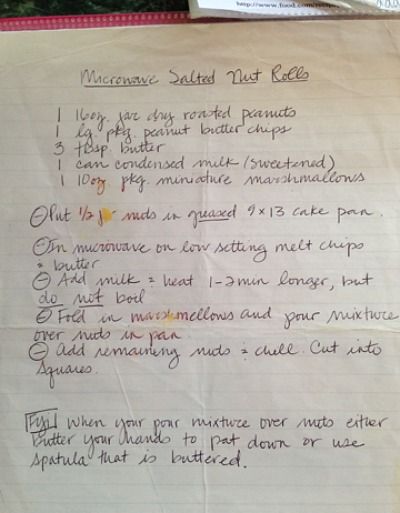 http://www.food.com/recipe
Microwave Salted Nut Rolls
1 16oz. jar dry roasted peanuts
1 lg. pkg. peanut butter chips
3 tbsp. butter
1 can condensed milk (sweetened)
1 10oz pkg. miniature marshmallows
Put 1/2 nuts in greased 9x13 cake pan.
In microwave on low setting melt chips
+ butter
Add milk + heat 1-2 min longer, but
do not boil
Fold in marshmellows and pour mixture
over nuts in pan
Add remaining nuts + chill. Cut into
squares.
FYI When your pour mixture over nuts either
butter your hands to pat down or use
spatula that is buttered.